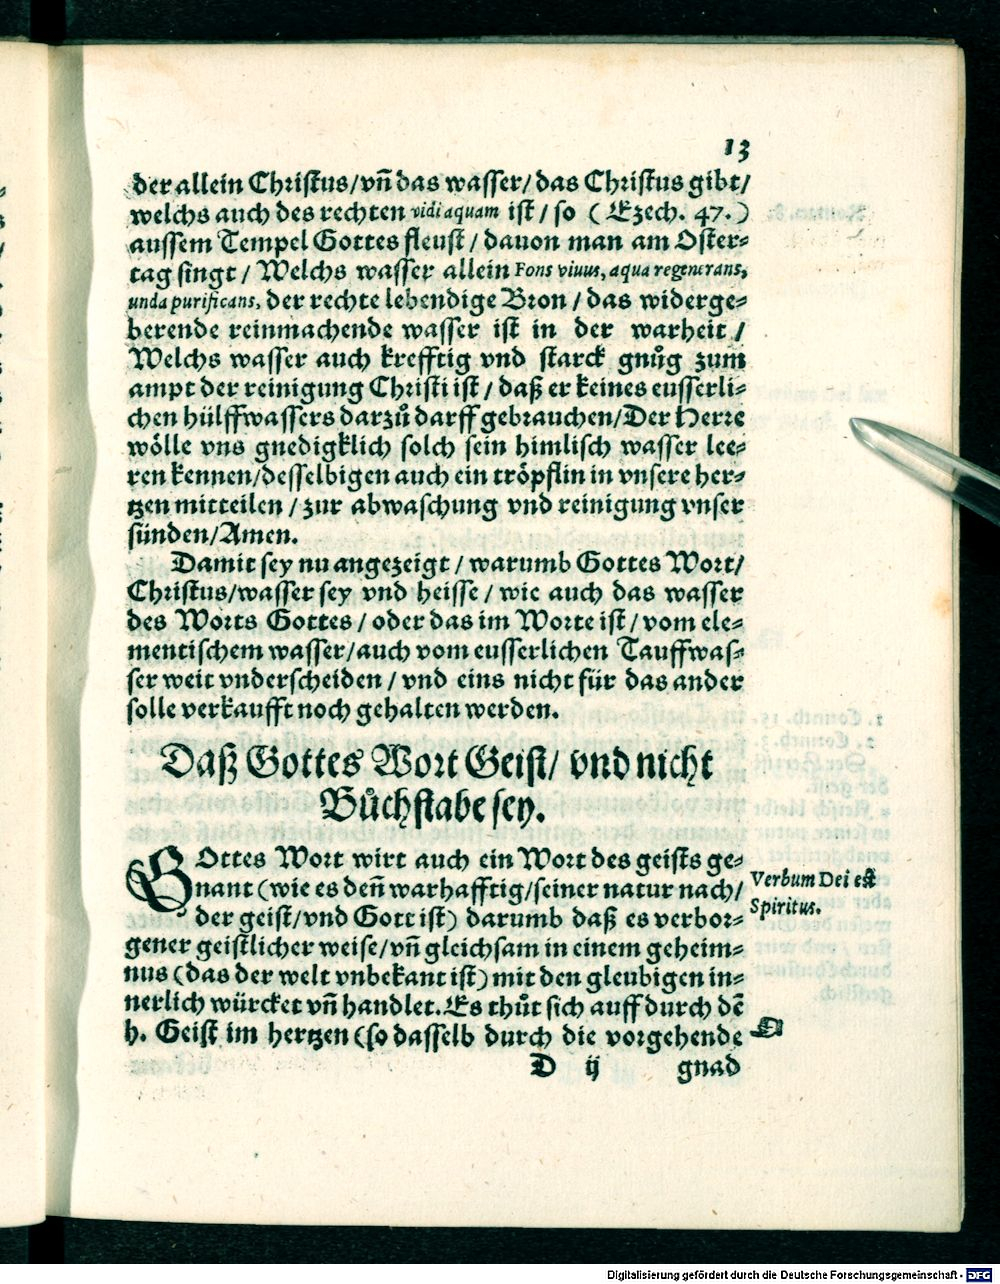 13
der allein Christus/vn̄ das wasser/das Christus gibt/
welchs auch des rechten vidi aquam ist/so ( Ezech. 47. )
aussem Tempel Gottes fleust/dauon man am Oster-
tag singt/Welchs wasser allein Fons viuus, aqua regenerans,
unda purificans, der rechte lebendige Bron/das widerge-
berende reinmachende wasser ist in der warheit/
Welchs wasser auch krefftig vnd starck gnůg zum
ampt der reinigung Christi ist/daß er keines eusserli-
chen hülffwassers darzů darff gebrauchen/Der Herre
wölle vns gnedigklich solch sein himlisch wasser lee-
ren kennen/desselbigen auch ein tröpflin in vnsere her-
tzen mitteilen/zur abwaschung vnd reinigung vnser
sünden/Amen.
Damit sey nu angezeigt/warumb Gottes Wort/
Christus/wasser sey vnd heisse/wie auch das wasser
des Worts Gottes/oder das im Worte ist/vom ele-
mentischem wasser/auch vom eusserlichen Tauffwas-
ser weit vnderscheiden/vnd eins nicht für das ander
solle verkaufft noch gehalten werden.
Daß Gottes Wort Geist/vnd nicht
Bůchstabe sey.
GOttes Wort wirt auch ein Wort des geists ge-
nant (wie es den̄ warhafftig/seiner natur nach/
der geist/vnd Gott ist) darumb daß es verbor-
gener geistlicher weise/vn̄ gleichsam in einem geheim-
nus (das der welt vnbekant ist) mit den gleubigen in-
nerlich würcket vn̄ handlet. Es thůt sich auff durch dē
h. Geist im hertzen (so dasselb durch die vorgehende
Verbum Dei est
Spiritus.
D ij gnad
Digitalisierung gefördert durch die Deutsche Forschungsgemeinschaft - DFG